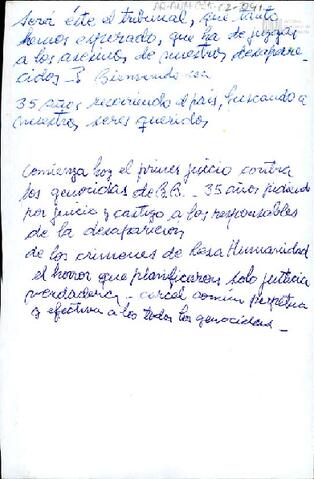 será éste el tribunal, que tanto
hemos esperado, que ha de juzgar
a los asesinos de nuestros desapare-
cidos - Bienvenido sea
35 años recorriendo el país, buscando a
nuestros seres queridos
Comienza hoy el primer juicio contra
los genocidas de B.B. - 35 años pidiendo
por juicio y castigo a los responsables
de la desaparicion
de los crimenes de Lesa Humanidad
el horror que planificaron solo justicia
verdadera - carcel común perpetua
y efectiva a los todos los genocidas -